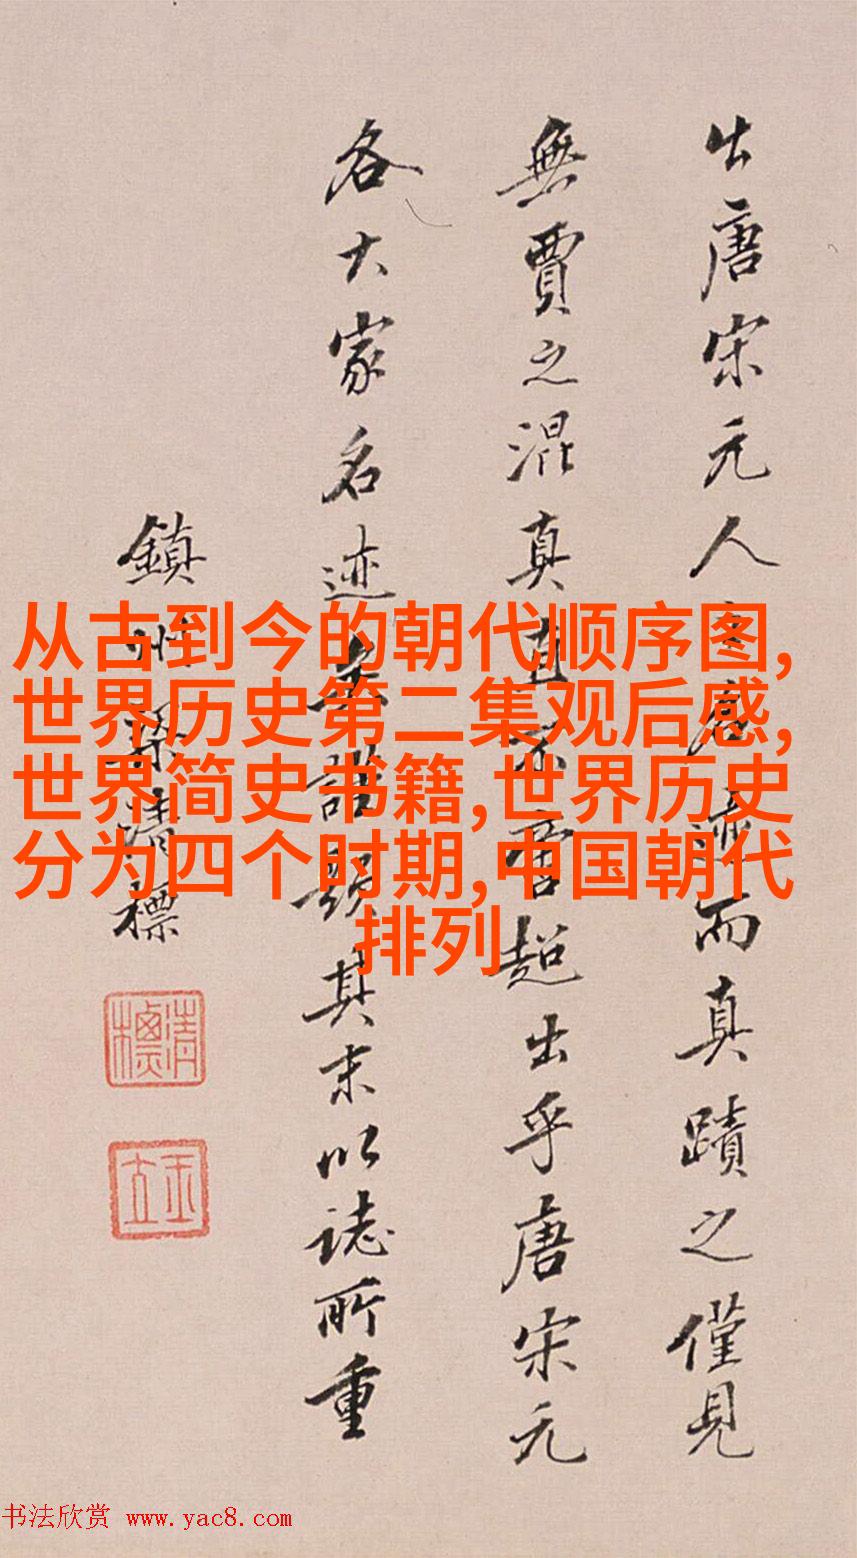 出唐宋元人
而真蹟之僅見
無賈之混真
超出乎唐宋元
各大家名迹
其末以誌所重
鎮
清標
清標
玉立
从古到今的朝代顺序图,
世界历史第二集观后感,
世界简史书籍,世界历史
分为四个时期,中国朝代
排列
书法欣赏 www.yac8.com